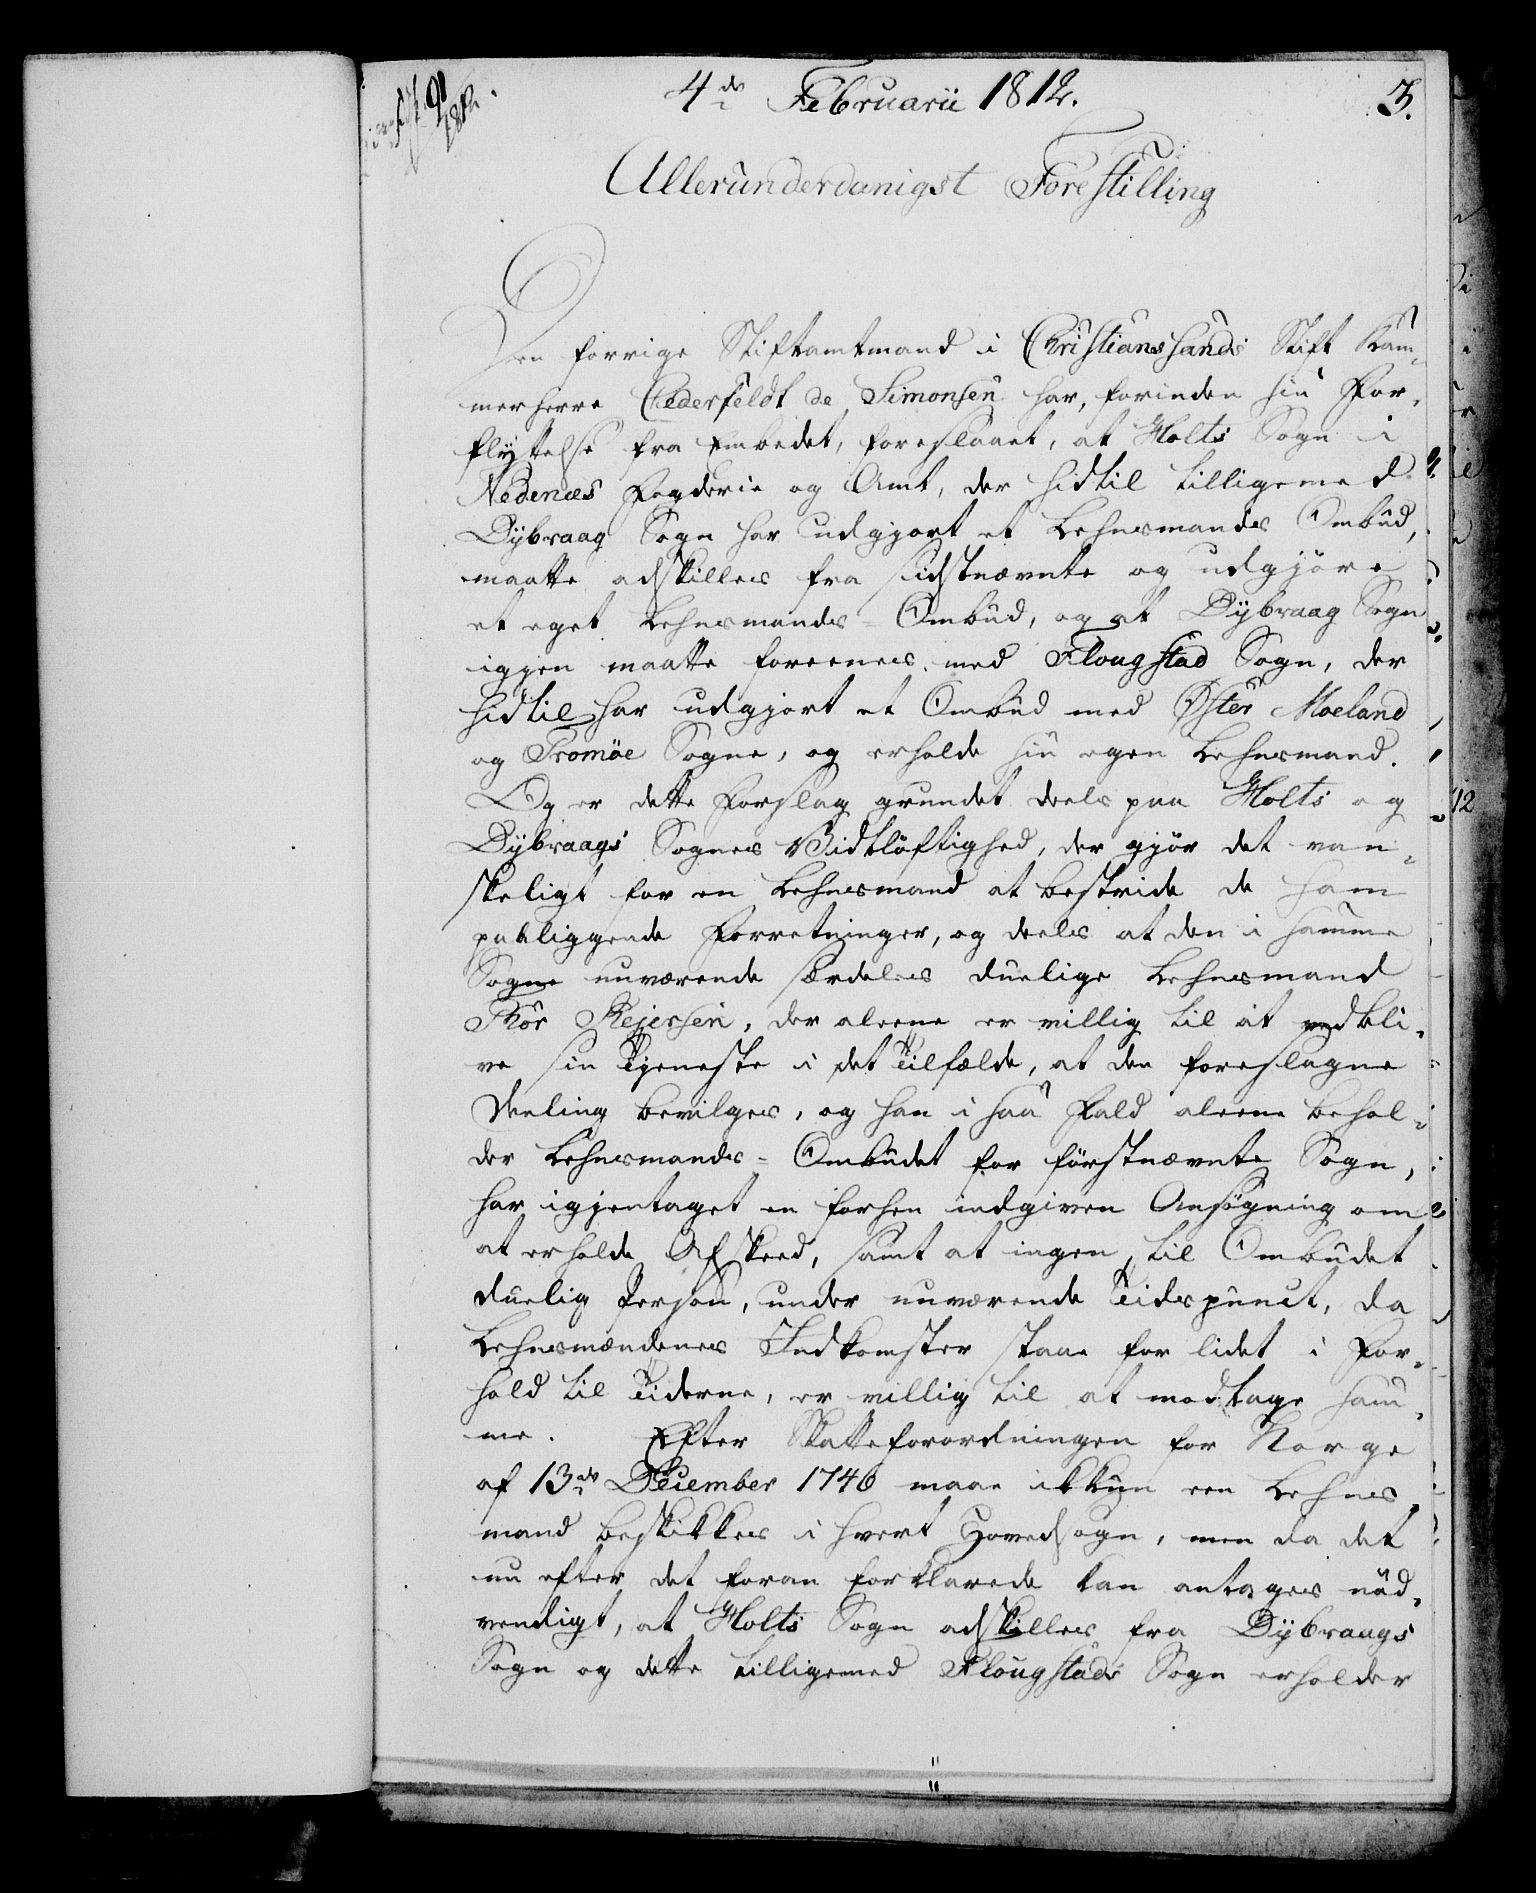 4de Februarii 1812.
3.
Allerunderdanigst Forestilling
Den forrige Stiftamtmand i Christianssands Stift Kam-
merherre Cederfeldt de Simonsen har, forinden sin For-
flyttelse fra Embedet, foreslaaet, at Holts Sogn i
Nedenæs Fogderie og Amt, der hidtil tilligemed
Dybvaag Sogn har udgjort et Lehnsmands Ombud,
maatte adskilles fra sidstnævnte og udgjöre
et eget Lehnsmands-Ombud, og at Dybvaag Sogn
igjen maatte foreenes med Flougstad Sogn, der
hidtil har udgjort et Ombud med Öster Moeland
og Tromöe Sogne, og erholde sin egen Lehnsmand.
Og er dette Forslag grundet deels paa Holts og
Dybvaags Sognes Vidtlöftighed, der gjör det van-
skeligt for en Lehnsmand at bestride de ham
paaliggende Forretninger, og deels at den i samme
Sogne nuværende særdeles duelige Lehnsmand
Thor Rejersen, der aleene er villig til at vedbli-
ve sin Tjeneste i det Tilfælde, at den foreslagne
Deeling bevilges, og han i saa Fald aleene behol-
der Lehnsmands-Ombudet for förstnævnte Sogn,
har igjentaget en forhen indgiven Ansögning om
at erholde Afskeed, samt at ingen, til Ombudet
duelig Person, under nuværende Tidspunct, da
Lehnsmændenes Indkomster staae for lidet i For-
hold til Tiderne, er villig til at modtage sam-
me. Efter Skatteforordningen for Norge
af 13de December 1746 maae ikkun een Lehns-
mand beskikkes i hvert Hovedsogn, men da det
nu efter det foran forklarede kan antages nöd-
vendigt, at Holts Sogn adskilles fra Dybvaags
Sogn og dette tilligemed Flougstads Sogn erholder